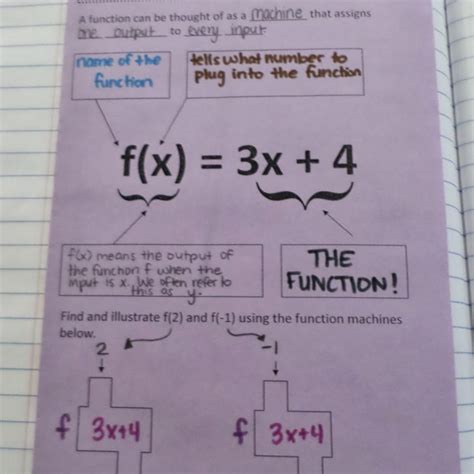 A function can be thought of as a machine that assigns
one output to every input.
name of the
function
tells what number to
plug into the function
f(x) = 3x + 4
f(x) means the output of
the function f when the
input is x. We often refer to
this as y.
THE
FUNCTION!
Find and illustrate f(2) and f(-1) using the function machines
below.
2 -1
f 3x+4 f 3x+4